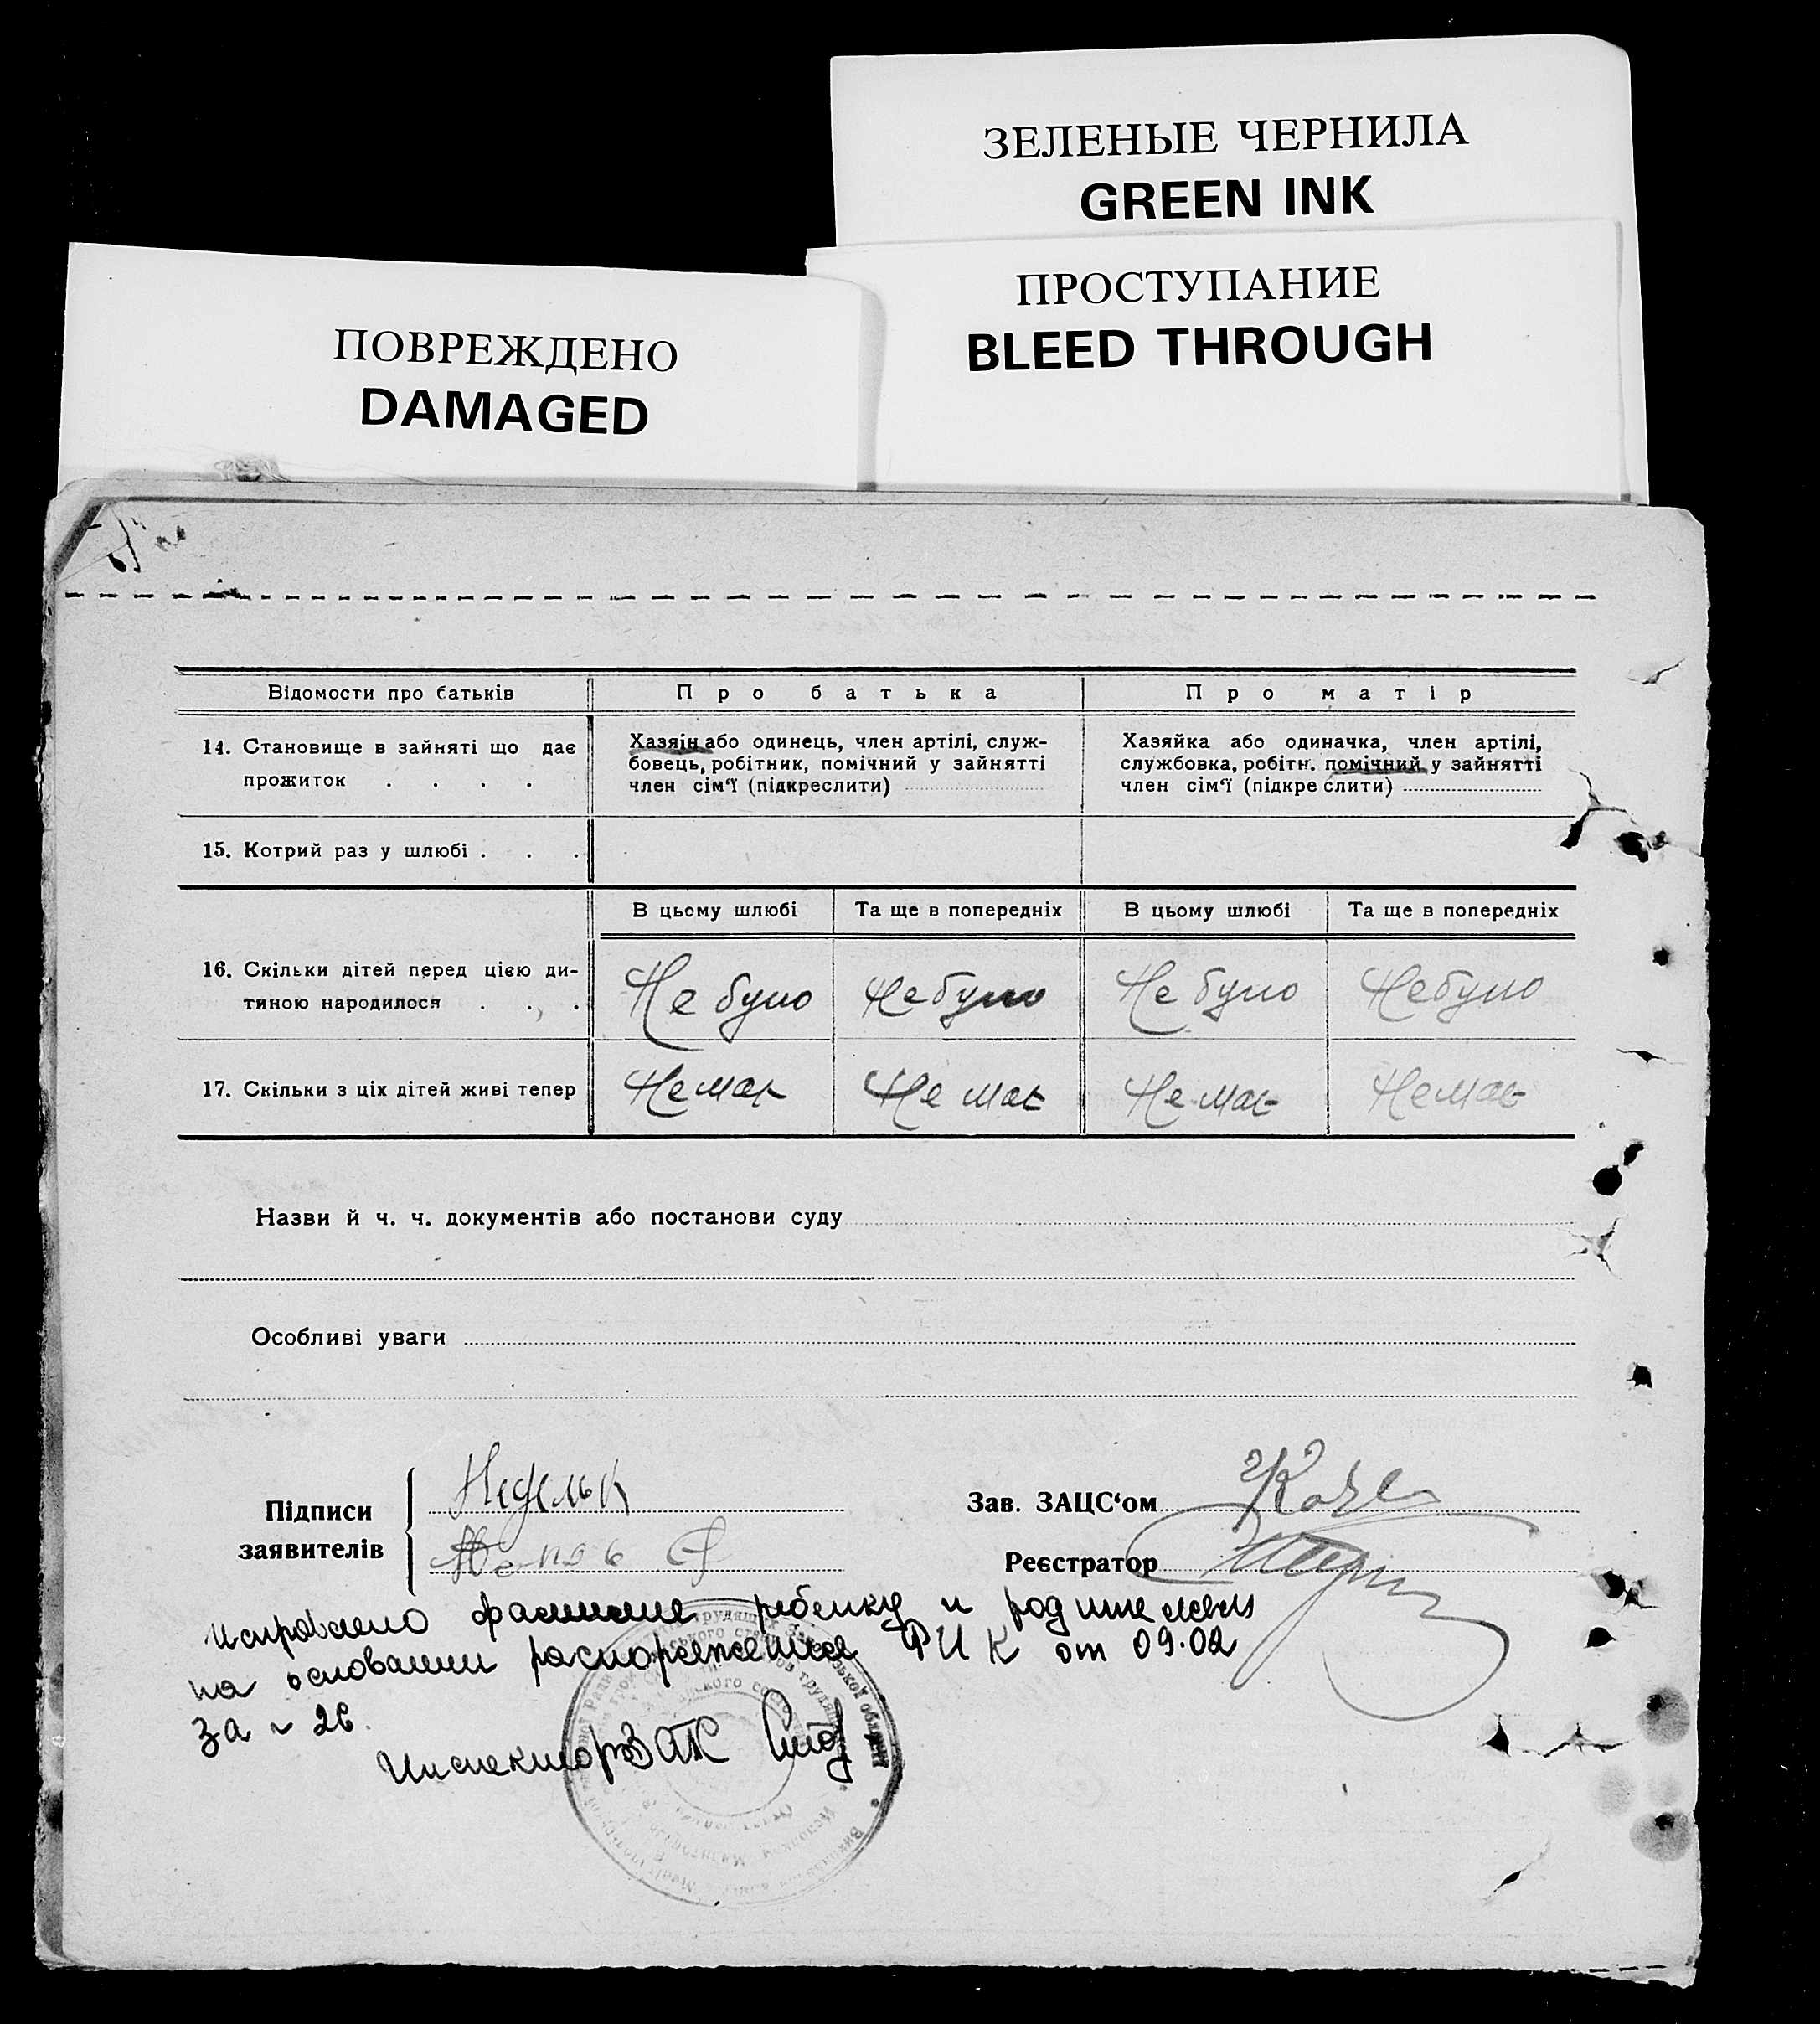 ЗЕЛЕНЫЕ ЧЕРНИЛА
GREEN INK
ПРОСТУПАНИЕ
BLEED THROUGH
ПОВРЕЖДЕНО
DAMAGED
Відомости про батьків
Про батька
Про матір
14. Становище в зайняті що дає
прожиток . . . .
Хазяїн або одинець, член артілі, служ-
бовець, робітник, помічний у зайнятті
член сім‘ї (підкреслити)
Хазяйка або одиначка, член артілі,
службовка, робітн. помічний у зайнятті
член сім‘ї (підкреслити)
15. Котрий раз у шлюбі . . .
В цьому шлюбі
Та ще в попередніх
В цьому шлюбі
Та ще в попередніх
16. Скільки дітей перед цією ди-
тиною народилося . . .
Не було
Не було
Не було
Не було
17. Скільки з ціх дітей живі тепер
Немає
Не має
Не має
Немає
Назви й ч. ч. документів або постанови суду
Особливі уваги
Підписи
заявителів
Зав. ЗАЦС‘ом
Реєстратор
исправлено фамилие ребенку и родителям
на основании распоряжения РИК от 09.02
за № 26.
Инспектор ЗАГС